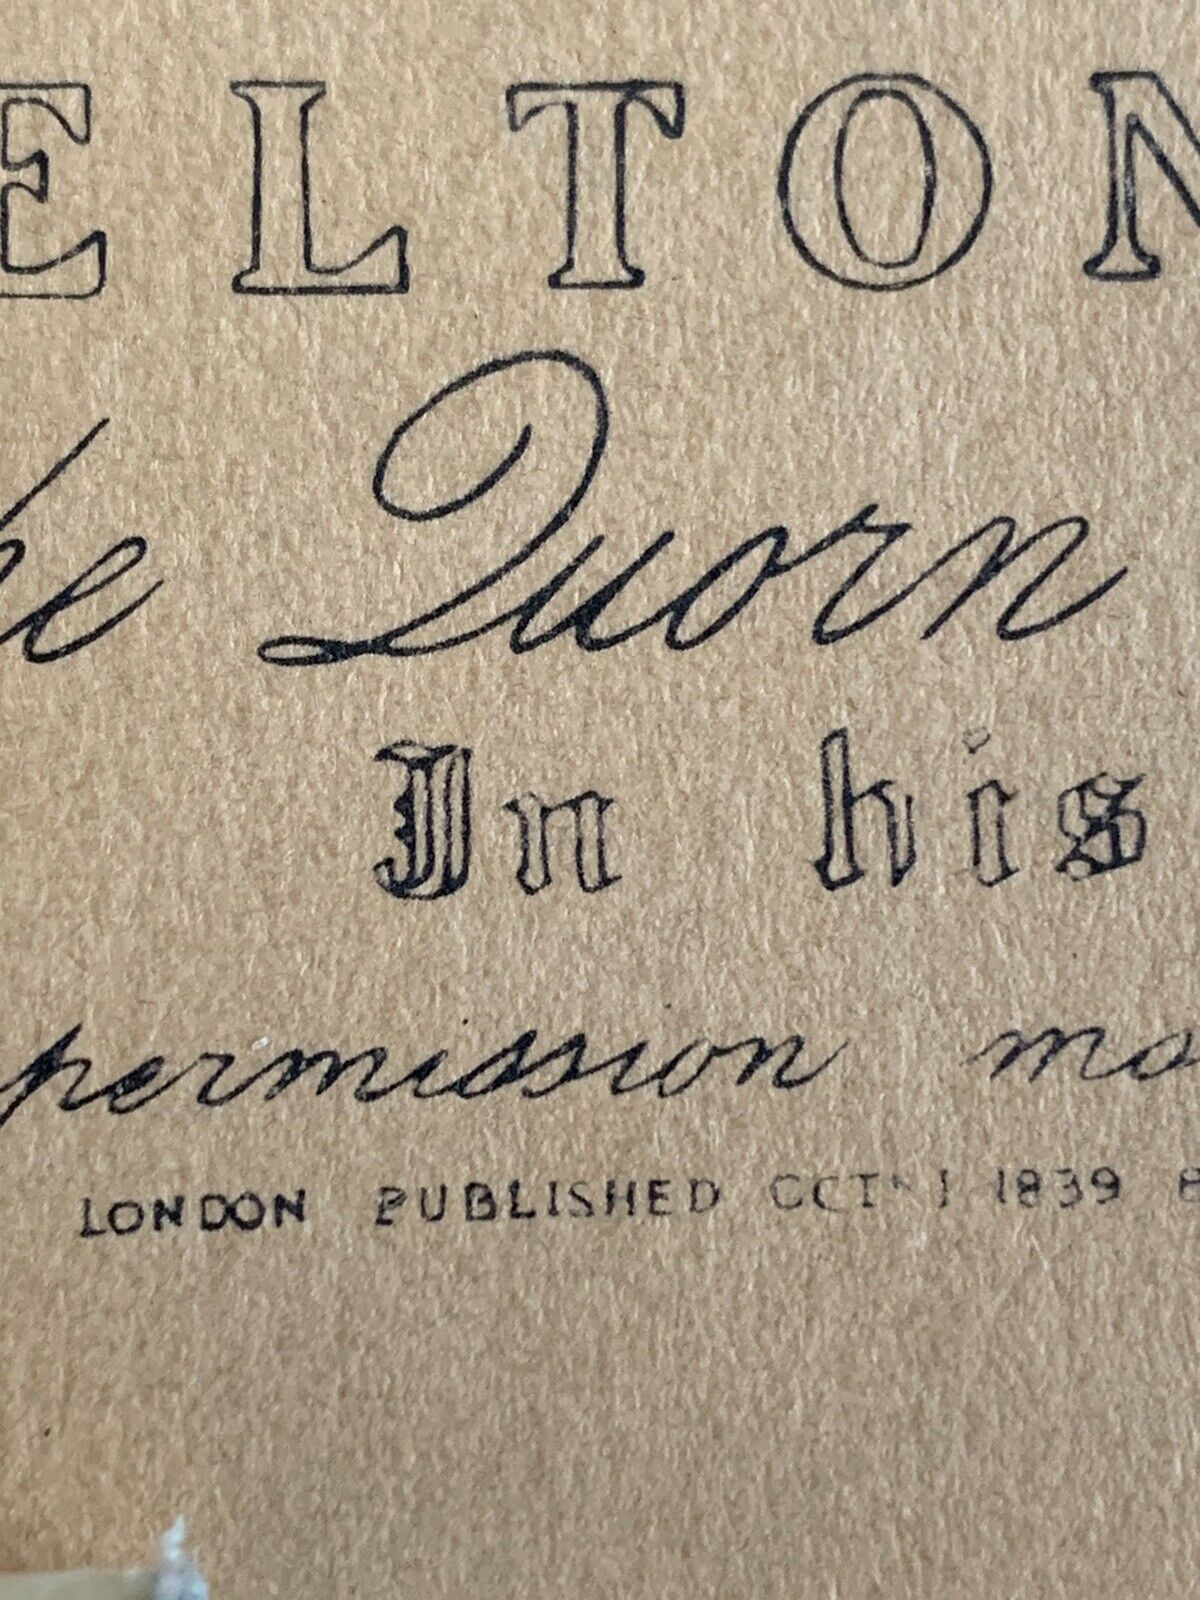 ELTON
he Quorn
In his
permission mo
LONDON PUBLISHED OCT 1 1839 B